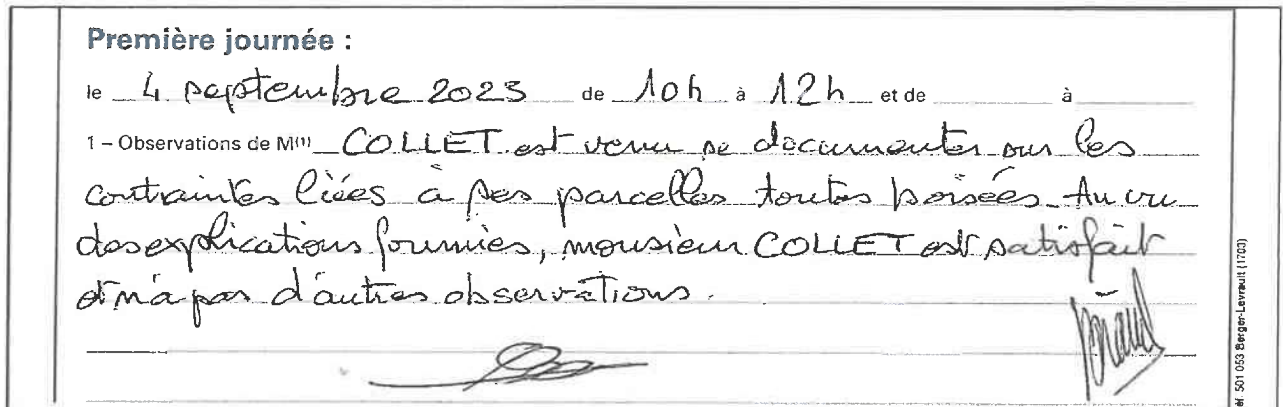 Première journée :
le 4 septembre 2023 de 10h à 12h et de à
1 – Observations de M(1) COLLET est venu se documenter sur les
contraintes liées à ses parcelles toutes boisées. Au vu
des explications fournies, monsieur COLLET est satisfait
et n'a pas d'autres observations.
éf. 501 053 Berger-Levrault (1703)